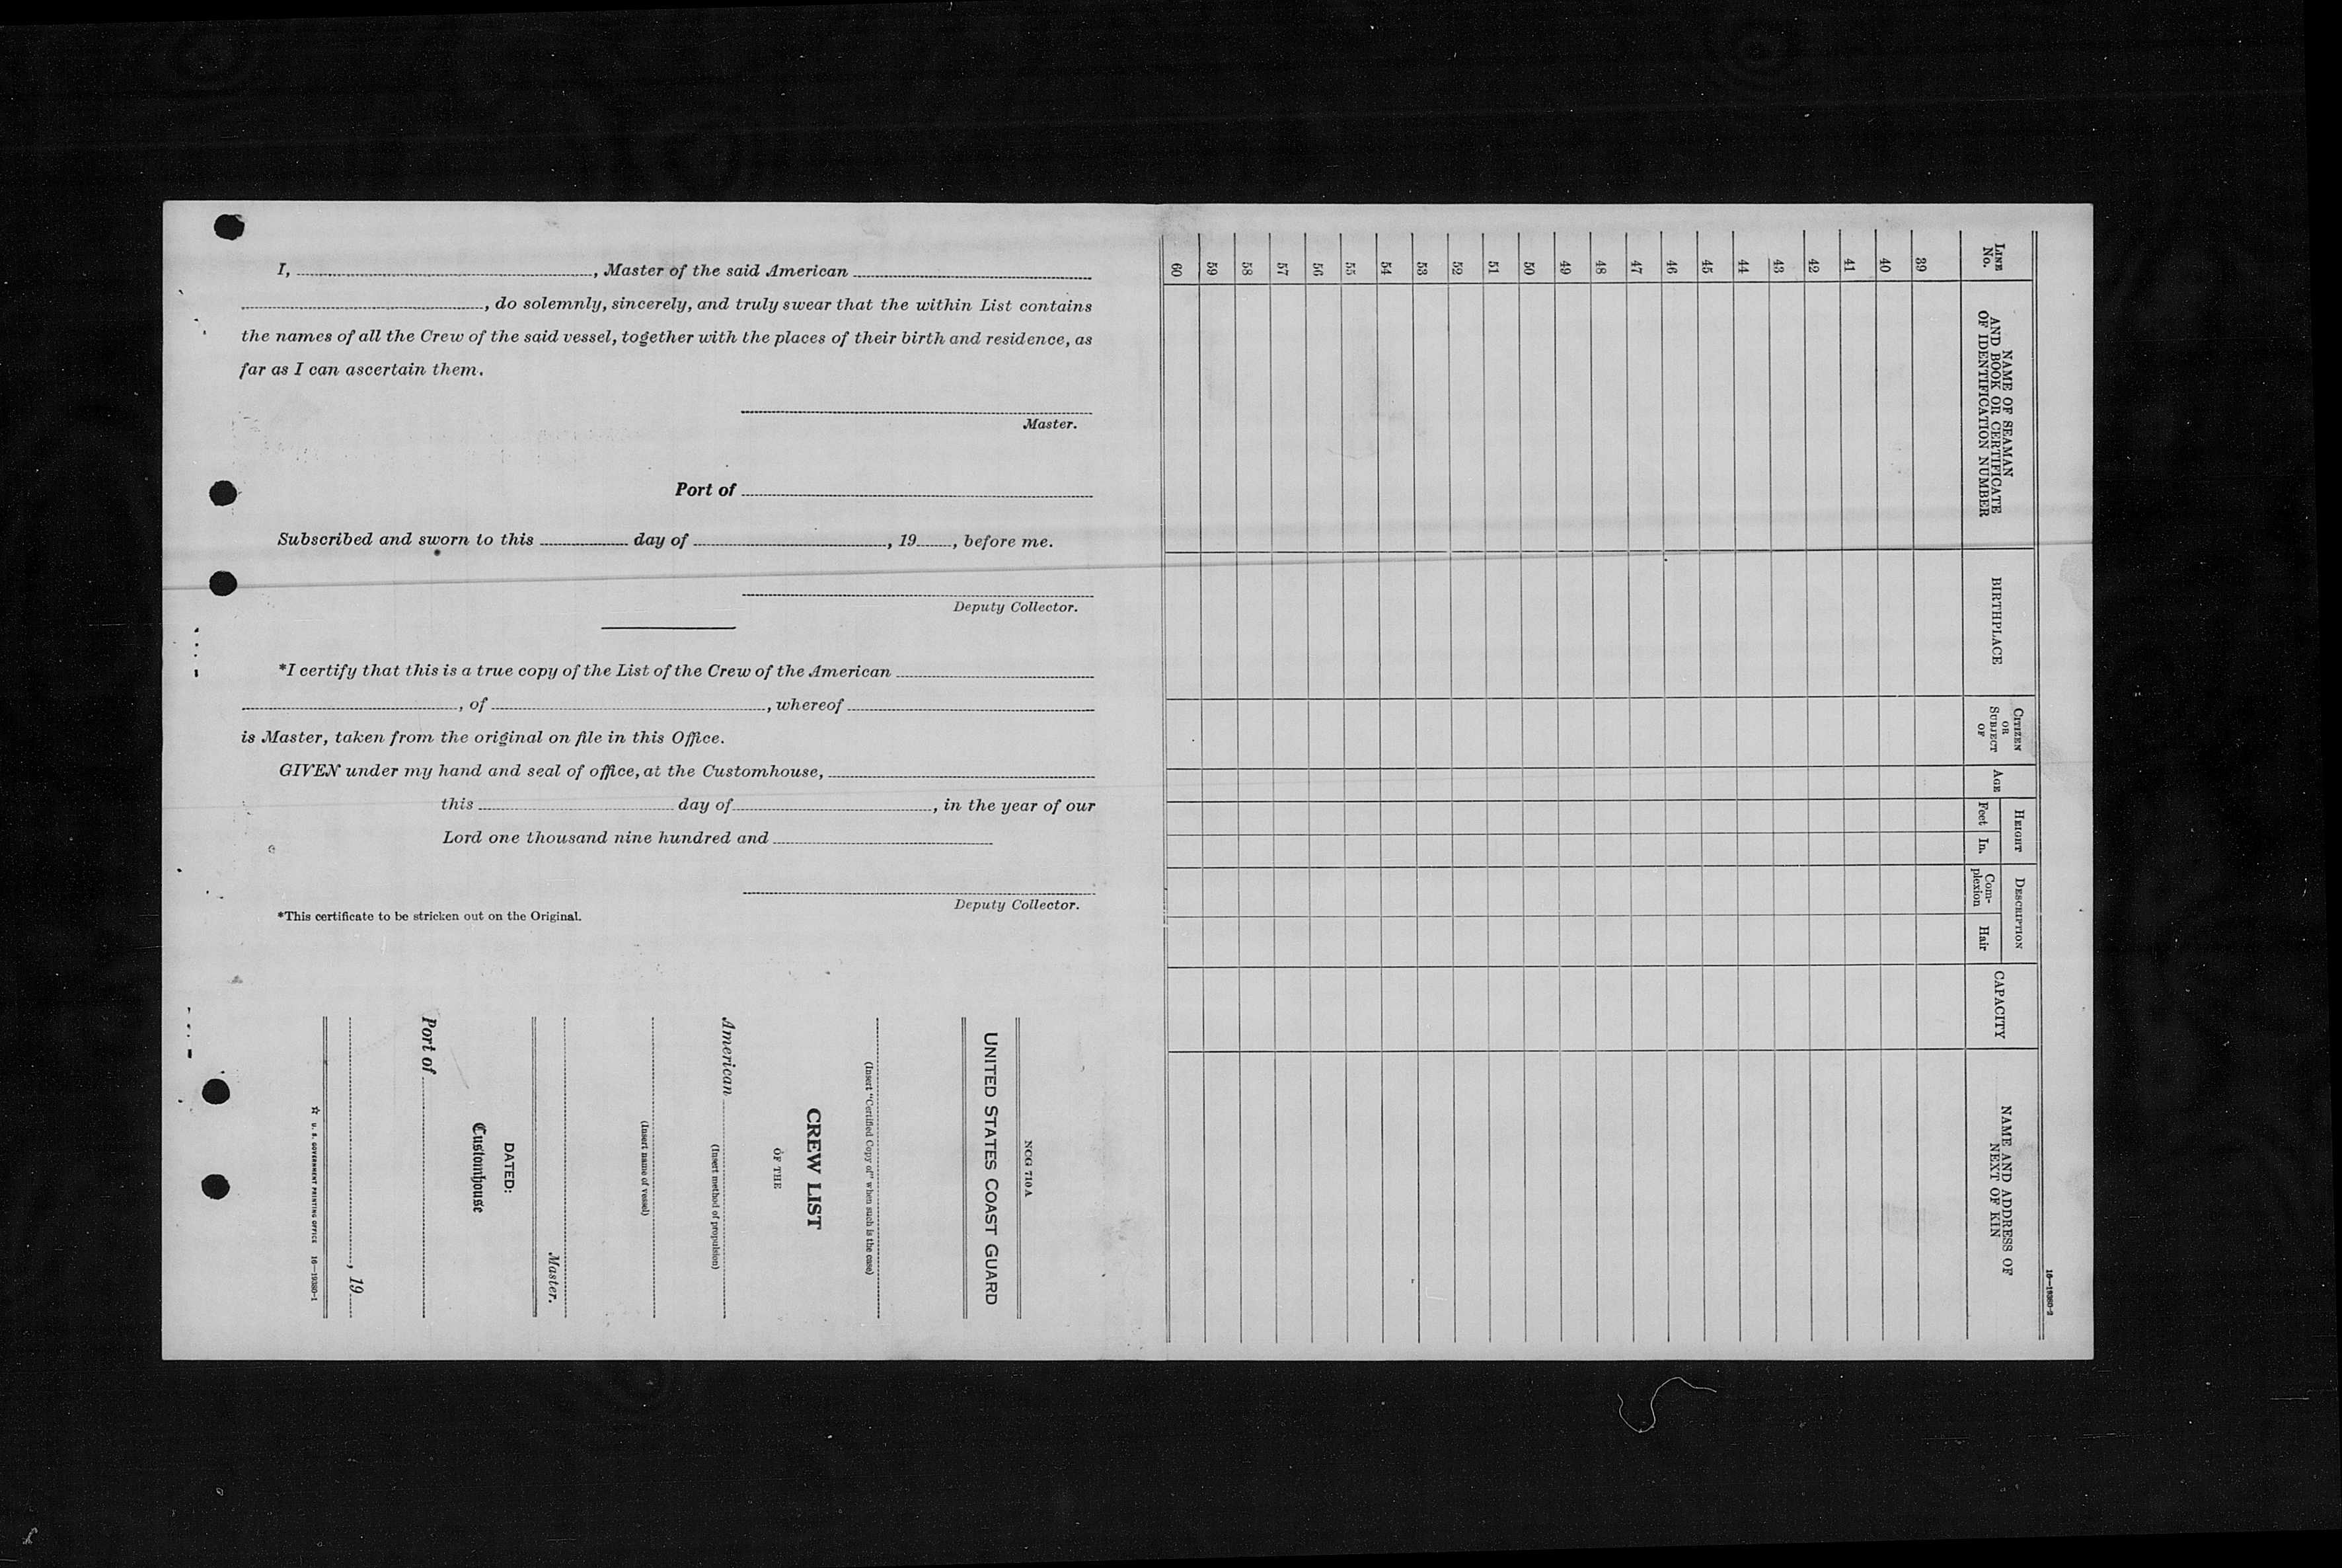 I, , Master of the said American
, do solemnly, sincerely, and truly swear that the within List contains
the names of all the Crew of the said vessel, together with the places of their birth and residence, as
far as I can ascertain them.
Master.
Port of
Subscribed and sworn to this day of , 19 , before me.
Deputy Collector.
*I certify that this is a true copy of the List of the Crew of the American
, of , whereof
is Master, taken from the original on file in this Office.
GIVEN under my hand and seal of office, at the Customhouse,
this day of , in the year of our
Lord one thousand nine hundred and
Deputy Collector.
*This certificate to be stricken out on the Original.
NCG 710A
UNITED STATES COAST GUARD
(Insert "Certified Copy of" when such is the case)
CREW LIST
OF THE
American
(Insert method of propulsion)
(Insert name of vessel)
Master.
DATED:
Customhouse
Port of
, 19
☆ U. S. GOVERNMENT PRINTING OFFICE 16—19380-1
16—19380-2
LINE
No.
NAME OF SEAMAN
AND BOOK OR CERTIFICATE
OF IDENTIFICATION NUMBER
BIRTHPLACE
CITIZEN
OR
SUBJECT
OF
AGE
HEIGHT
Feet In.
DESCRIPTION
Com-
plexion
Hair
CAPACITY
NAME AND ADDRESS OF
NEXT OF KIN
39
40
41
42
43
44
45
46
47
48
49
50
51
52
53
54
55
56
57
58
59
60